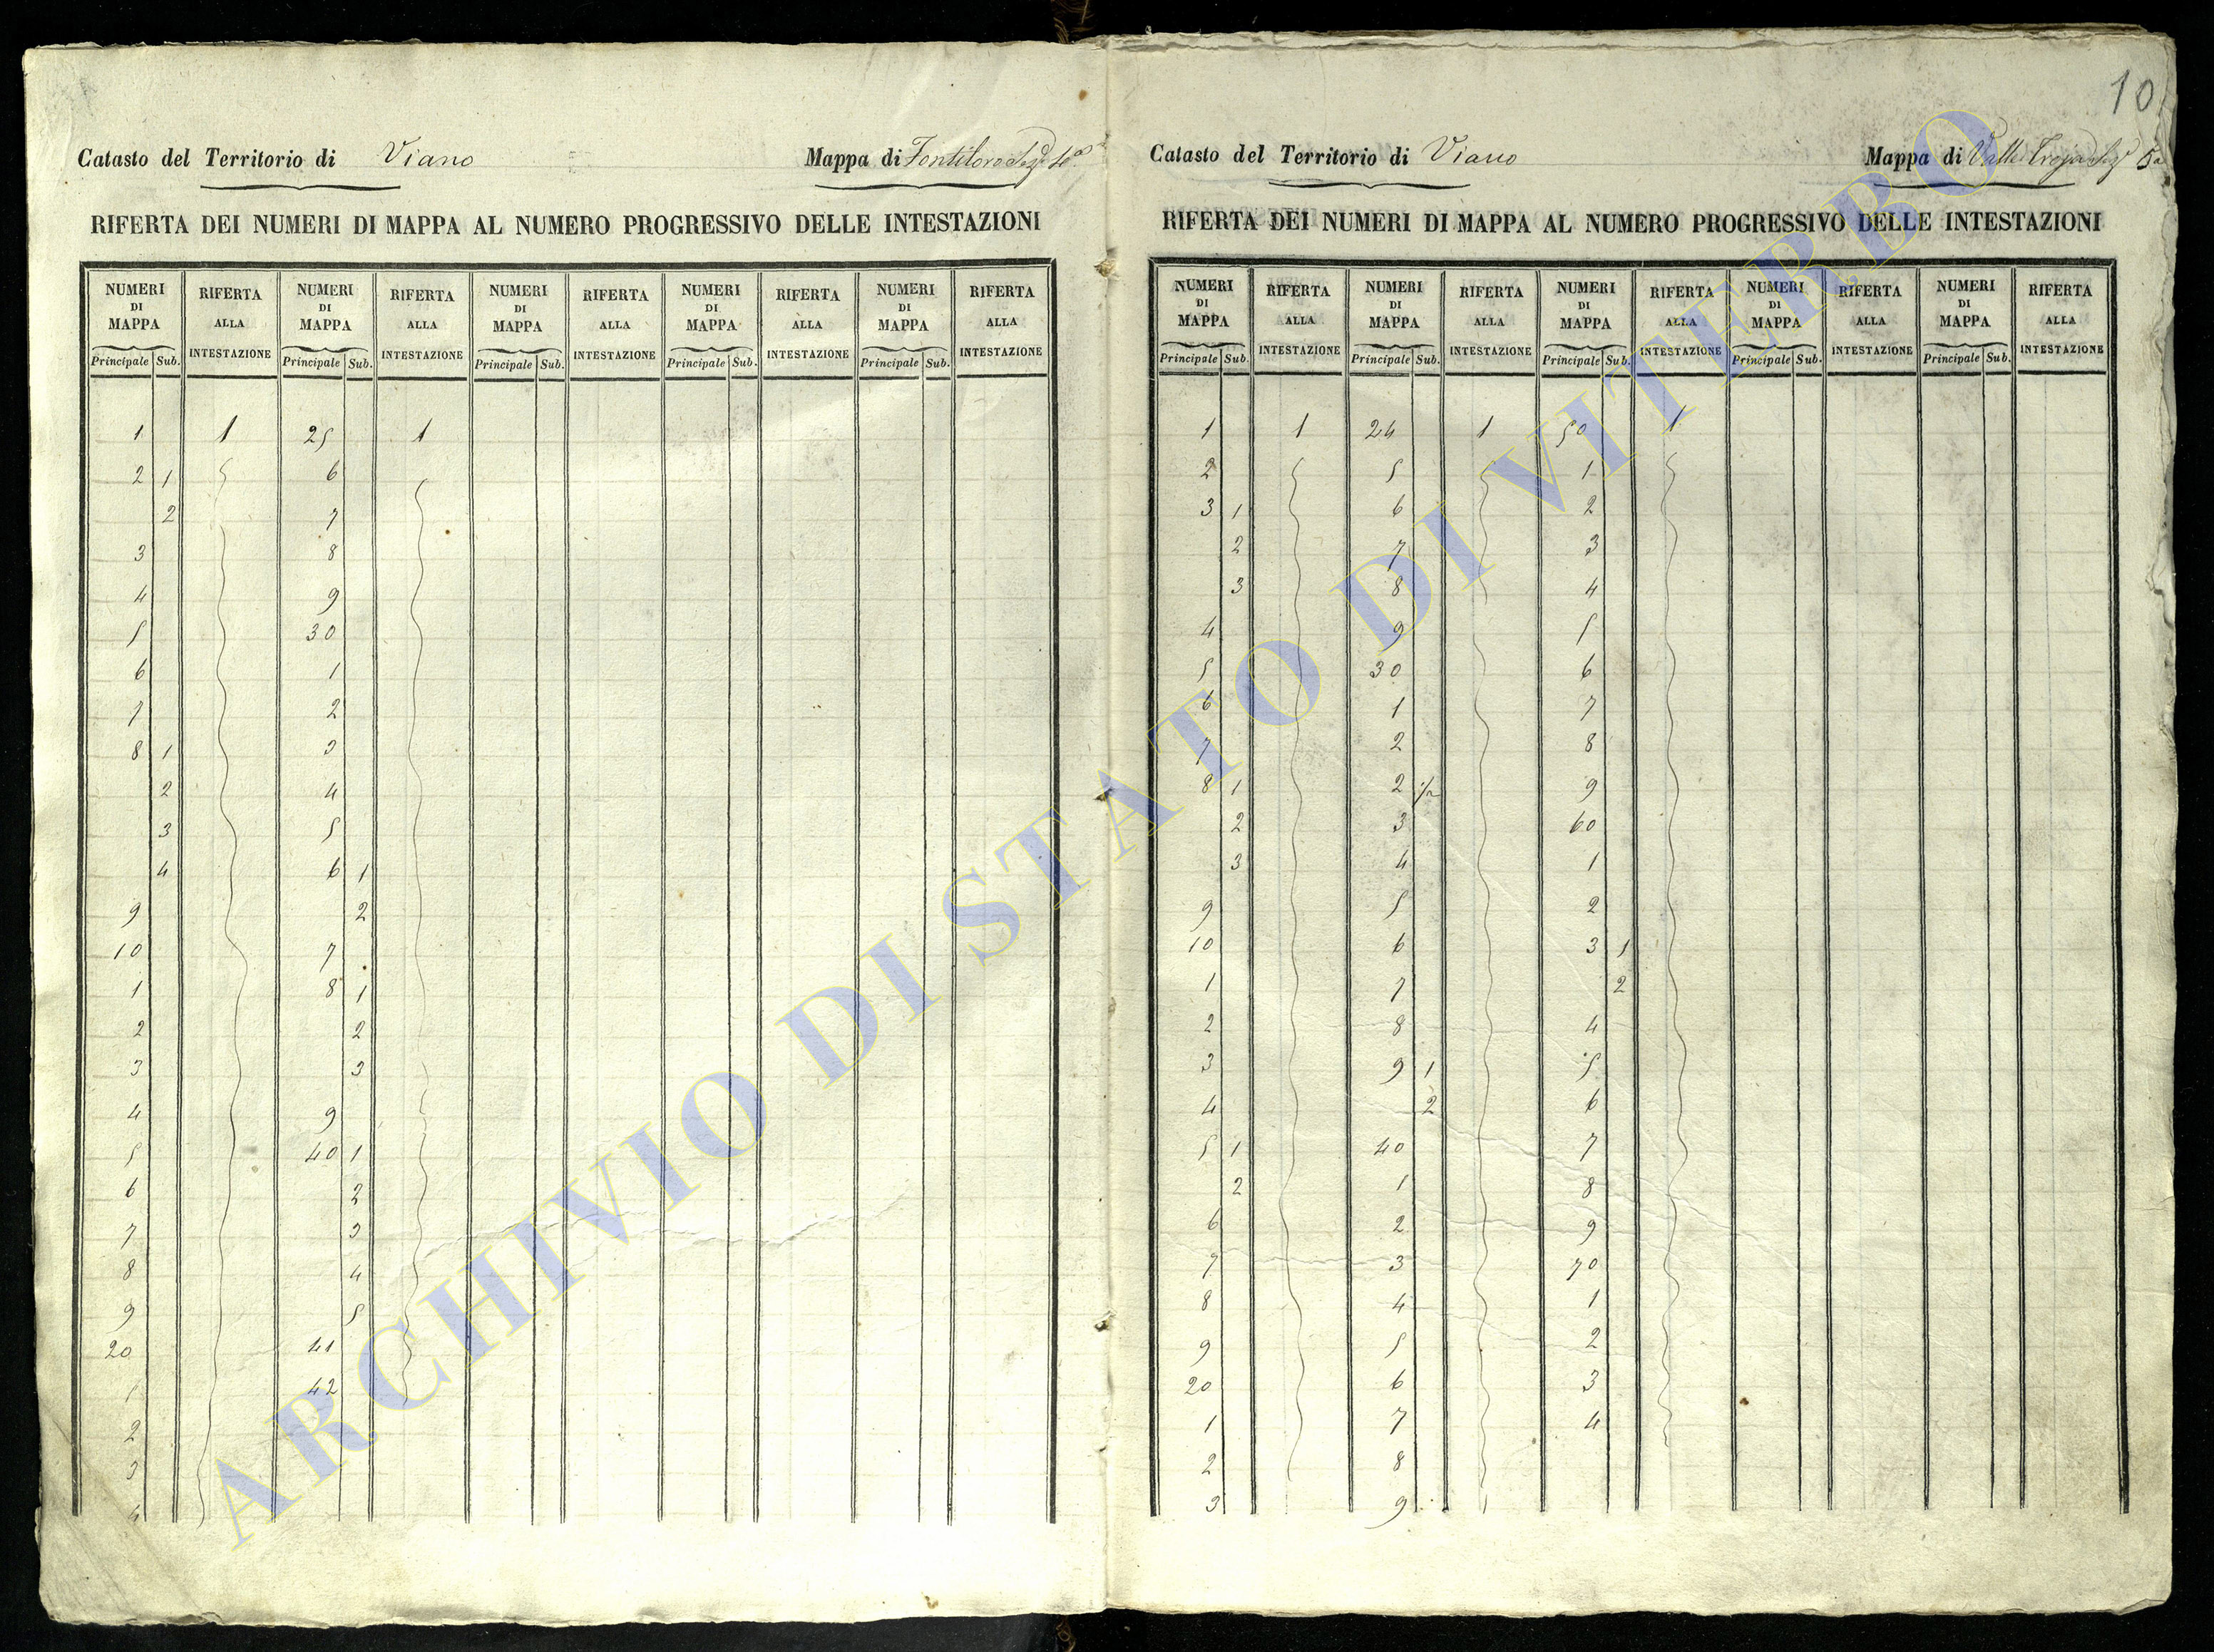 10
Catasto del Territorio di Viano Mappa di Fontiloro Seze 4a
RIFERTA DEI NUMERI DI MAPPA AL NUMERO PROGRESSIVO DELLE INTESTAZIONI
NUMERI DI MAPPA RIFERTA ALLA INTESTAZIONE NUMERI DI MAPPA RIFERTA ALLA INTESTAZIONE NUMERI DI MAPPA RIFERTA ALLA INTESTAZIONE NUMERI DI MAPPA RIFERTA ALLA INTESTAZIONE NUMERI DI MAPPA RIFERTA ALLA INTESTAZIONE
Principale Sub. Principale Sub. Principale Sub. Principale Sub. Principale Sub.
1 1 25 1
2 1 6
2 7
3 8
4 9
5 30
6 1
7 2
8 1 3
2 4
3 5
4 6 1
9 2
10 7
1 8 1
2 2
3 3
4 9
5 40 1
6 2
7 3
8 4
9 5
20 41
1 42
2
3
4
Catasto del Territorio di Viano Mappa di Valle Troja Seze 5a
RIFERTA DEI NUMERI DI MAPPA AL NUMERO PROGRESSIVO DELLE INTESTAZIONI
NUMERI DI MAPPA RIFERTA ALLA INTESTAZIONE NUMERI DI MAPPA RIFERTA ALLA INTESTAZIONE NUMERI DI MAPPA RIFERTA ALLA INTESTAZIONE NUMERI DI MAPPA RIFERTA ALLA INTESTAZIONE NUMERI DI MAPPA RIFERTA ALLA INTESTAZIONE
Principale Sub. Principale Sub. Principale Sub. Principale Sub. Principale Sub.
1 1 24 1 50 1
2 5 1
3 1 6 2
2 7 3
3 8 4
4 9 5
5 30 6
6 1 7
7 2 8
8 1 2 1/2 9
2 3 60
3 4 1
9 5 2
10 6 3 1
1 7 2
2 8 4
3 9 1 5
4 2 6
5 1 40 7
2 1 8
6 2 9
7 3 70
8 4 1
9 5 2
20 6 3
1 7 4
2 8
3 9
ARCHIVIO DI STATO DI VITERBO